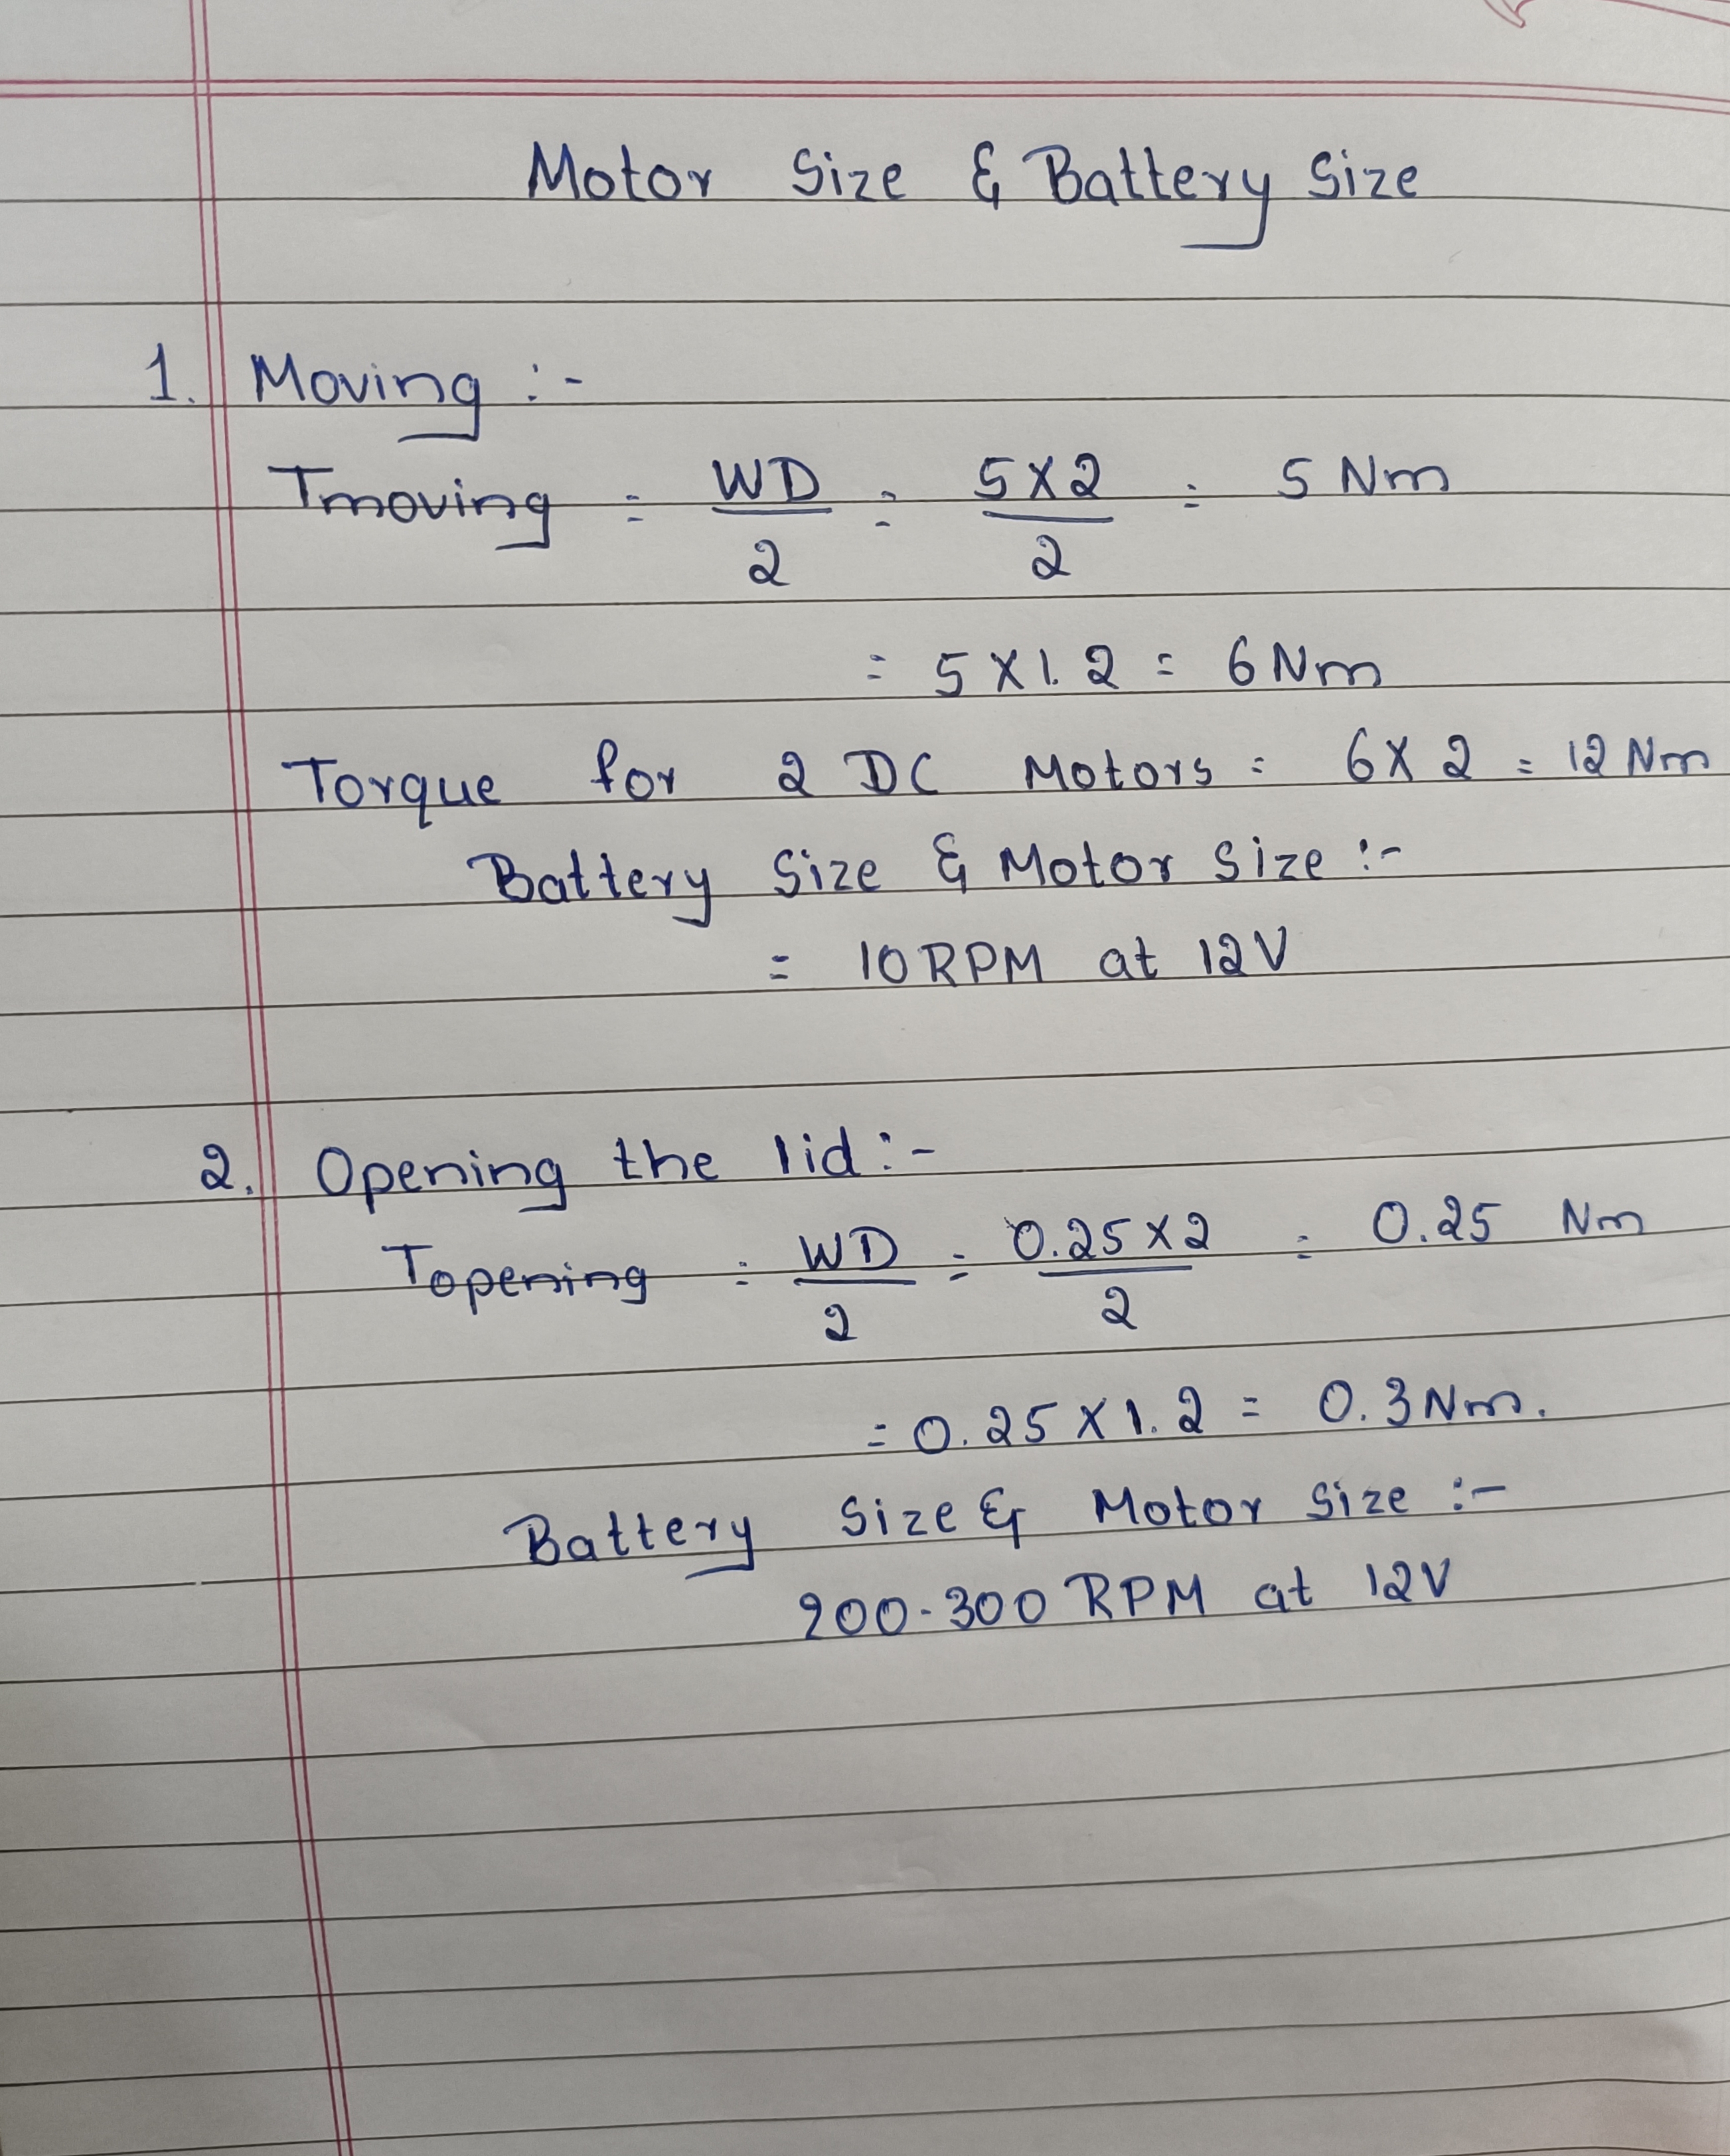 Motor Size & Battery Size
1. Moving :-
Tmoving = WD/2 = 5X2/2 = 5 Nm
= 5X1.2 = 6Nm
Torque for 2 DC Motors = 6X2 = 12 Nm
Battery Size & Motor Size :-
= 10RPM at 12V
2. Opening the lid :-
Topening = WD/2 = 0.25X2/2 = 0.25 Nm
= 0.25X1.2 = 0.3Nm.
Battery Size & Motor Size :-
200-300 RPM at 12V